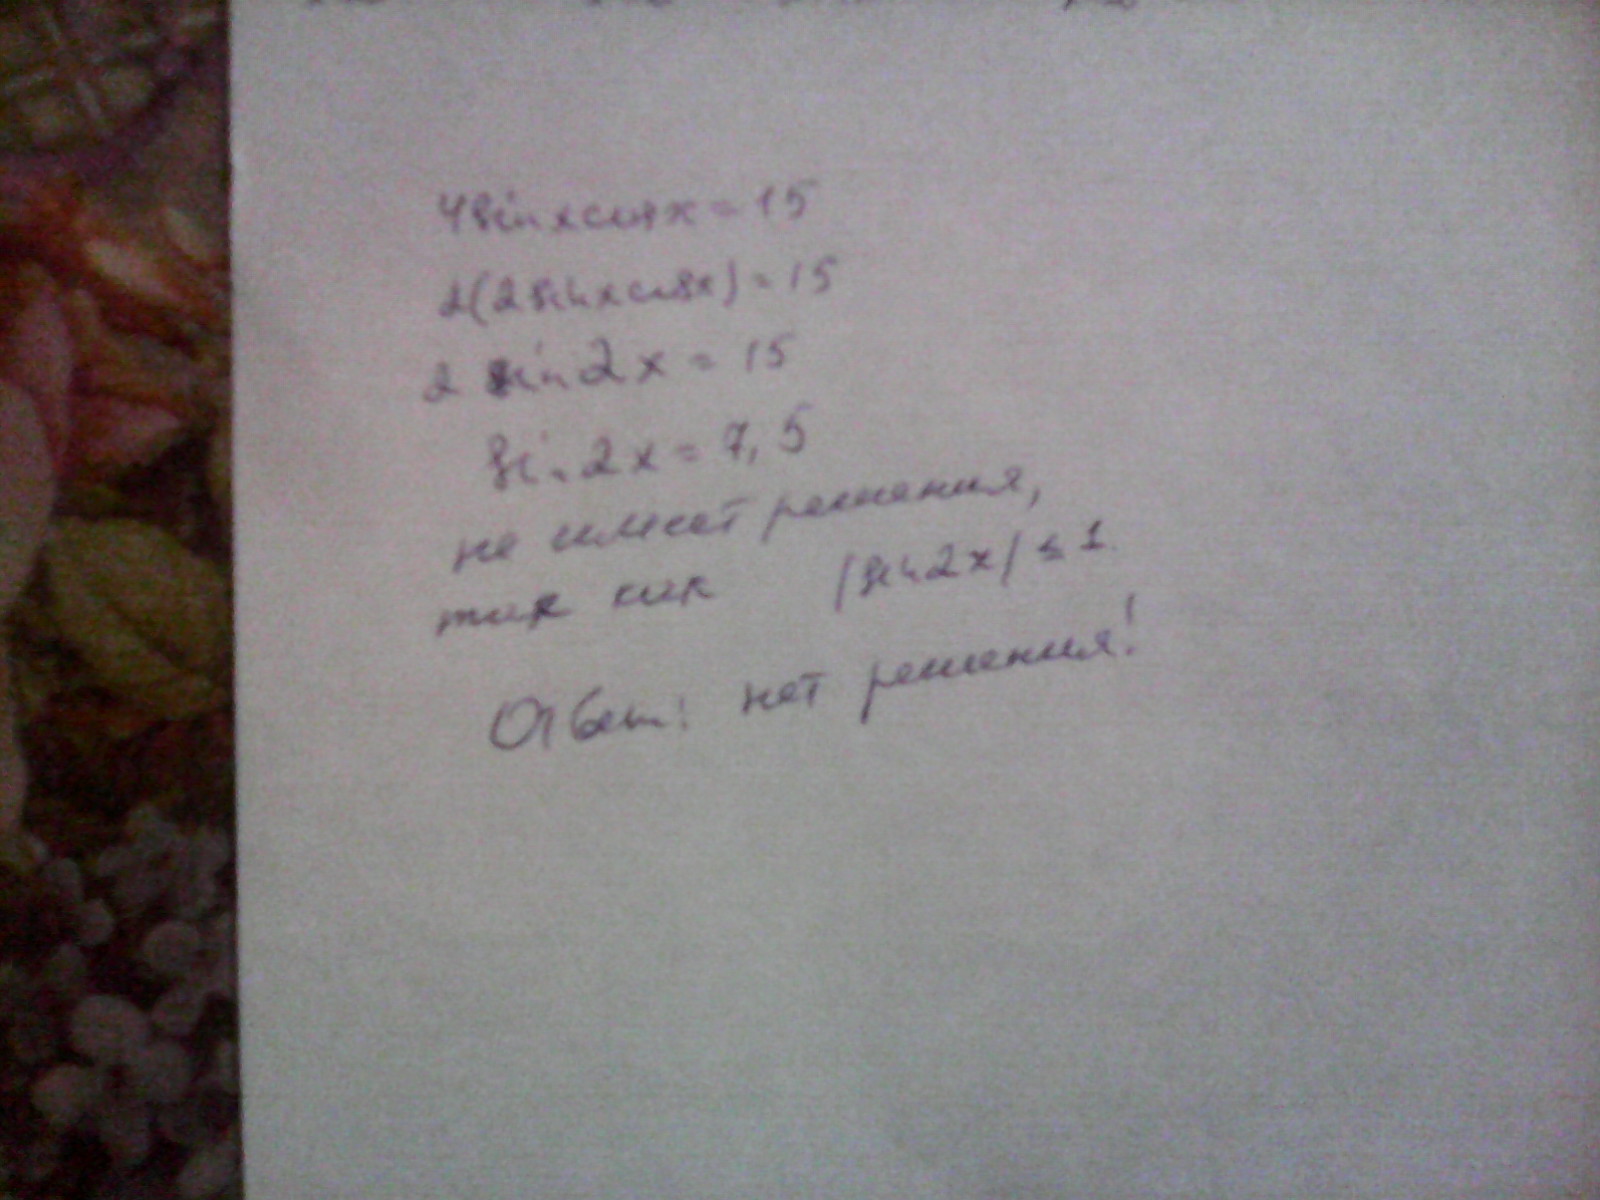 4sinxcosx = 15
2(2sinxcosx) = 15
2 sin2x = 15
sin2x = 7,5
не имеет решения,
так как |sin2x| ≤ 1
Ответ: нет решения!